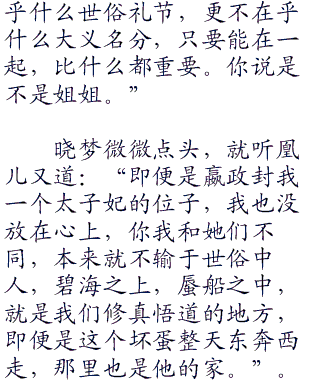 乎什么世俗礼节，更不在乎
什么大义名分，只要能在一
起，比什么都重要。你说是
不是姐姐。”
晓梦微微点头，就听凰
儿又道：“即便是嬴政封我
一个太子妃的位子，我也没
放在心上，你我和她们不
同，本来就不输于世俗中
人，碧海之上，蜃船之中，
就是我们修真悟道的地方，
即便是这个坏蛋整天东奔西
走，那里也是他的家。”。